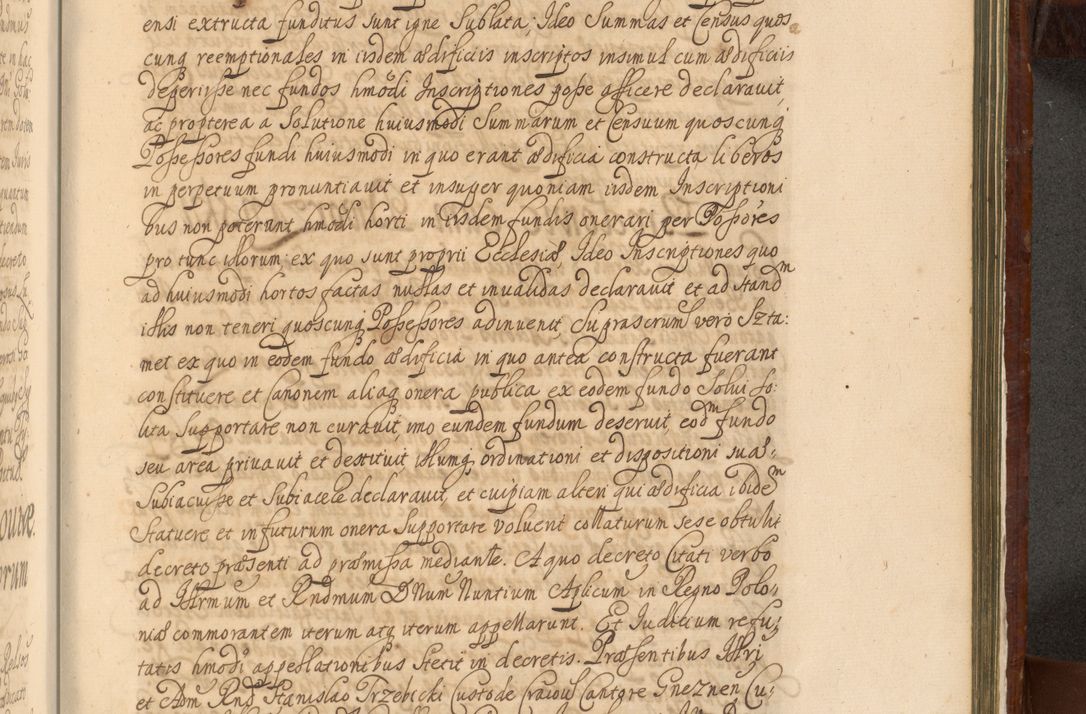 ensi extructa funditus sunt igne sublata; Ideo Summas et Census quos
cunq reemptionales in iisdem ædificiis inscriptos insimul cum ædificiis
deperiisse nec fundos hmōdi Inscriptiones posse afficere declarauit,
ac propterea a solutione huiusmodi Summarum et Censuum quoscunq
Possessores fundi huiusmodi in quo erant ædificia constructa liberos
in perpetuum pronuntiauit et insuper quoniam iisdem Inscriptioni
bus non poterant hmōdi horti in iisdem fundis onerari per Possōres
pro tunc illorum ex quo sunt proprii Ecclesiæ, Ideo Inscriptiones quo
ad huiusmodi hortos factas nullas et inualidas declarauit et ad standm
illis non teneri quoscunq Possessores adinuenit, Suprascrum vero Szta:
met ex quo in eodem fundo ædificia in quo antea constructa fuerant
constituere et Canonem aliaq onera publica ex eodem fundo solui so:
lita supportare non curauit, imo eundem fundum deseruit, eodm fundo
seu area priuauit et destituit, illumq ordinationi et dispositioni suæ:
subiacuisse et subiacere declarauit, et cuipiam alteri qui ædificia ibidem
statuere et in futurum onera supportare voluerit collaturum sese obtulit
decreto præsenti ad præmissa mediante. A quo decreto Citati verbo
ad Illrmum et Rndmum DNum Nuntium Aplicum in Regno Polo:
niæ commorantem iterum atq iterum appellarunt. Et Iudicium refu:
tatis hmōdi appellationibus stetit in decretis. Præsentibus Illri
et Adm Rnd Stanislao Trzebicki Custode Craciou Cantore Gneznen Cu: